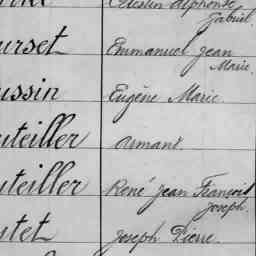 Célestin Alphonse
Gabriel.
urset Emmanuel Jean
Marie.
ussin Eugène Marie
uteiller Armand.
uteiller René Jean François
Joseph.
utet Joseph Pierre.